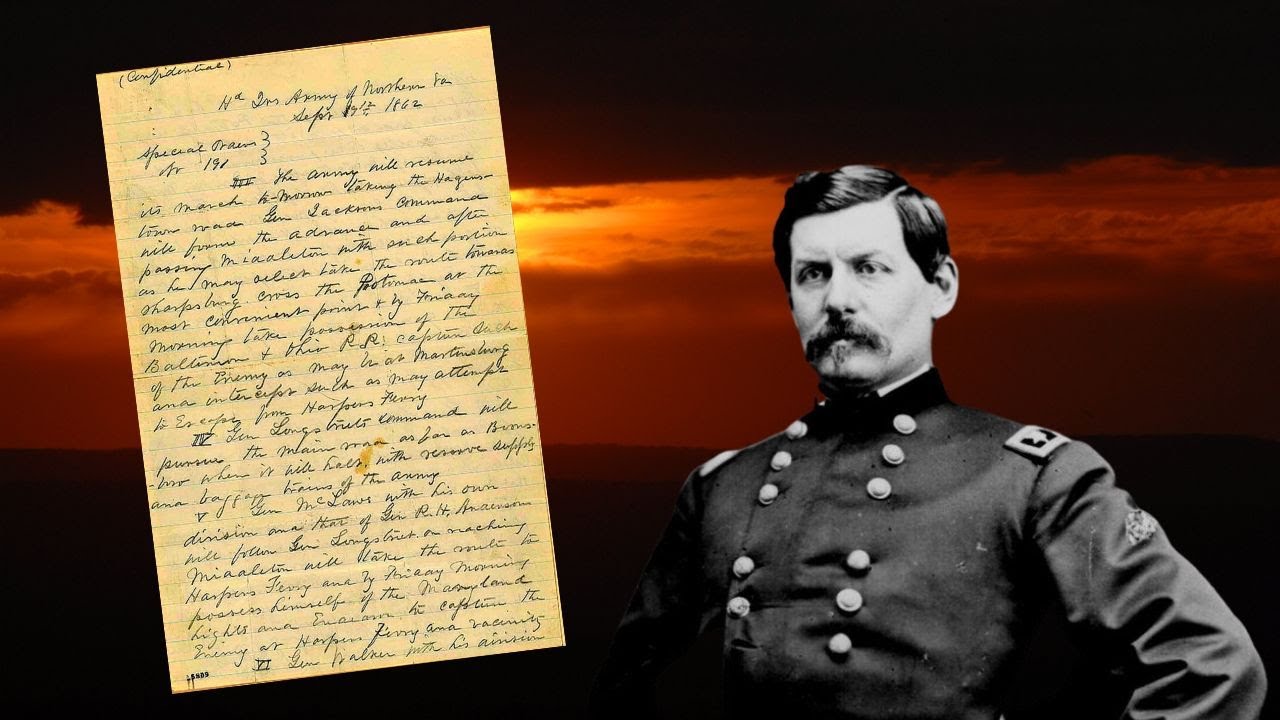 (Confidential)
Hd Qrs Army of Northern Va
Sept 9th 1862
Special Orders }
Nr 191 }
III The Army will resume
its march to-morrow taking the Hagers-
town road Gen Jacksons Command
will form the advance and after
passing Middleton with such portion
as he may select take the route towards
Sharpsburg. cross the Potomac at the
most convenient point & by Friday
morning take possession of the
Baltimore & Ohio R.R. capture such
of the Enemy as may be at Martinsburg
and intercept such as may attempt
to Escape from Harpers Ferry
IV Gen Longstreets command will
pursue the main road as far as Boons-
-boro when it will halt, with reserve supply
and baggage trains of the army
V Gen McLaws with his own
division and that of Gen R. H. Andersons
will follow Gen Longstreet on reaching
Middleton will take the route to
Harpers Ferry and by Friday Morning
possess himself of the Maryland
hights and Endeavor to capture the
Enemy at Harpers Ferry and vacinity
VI Gen Walker with his division